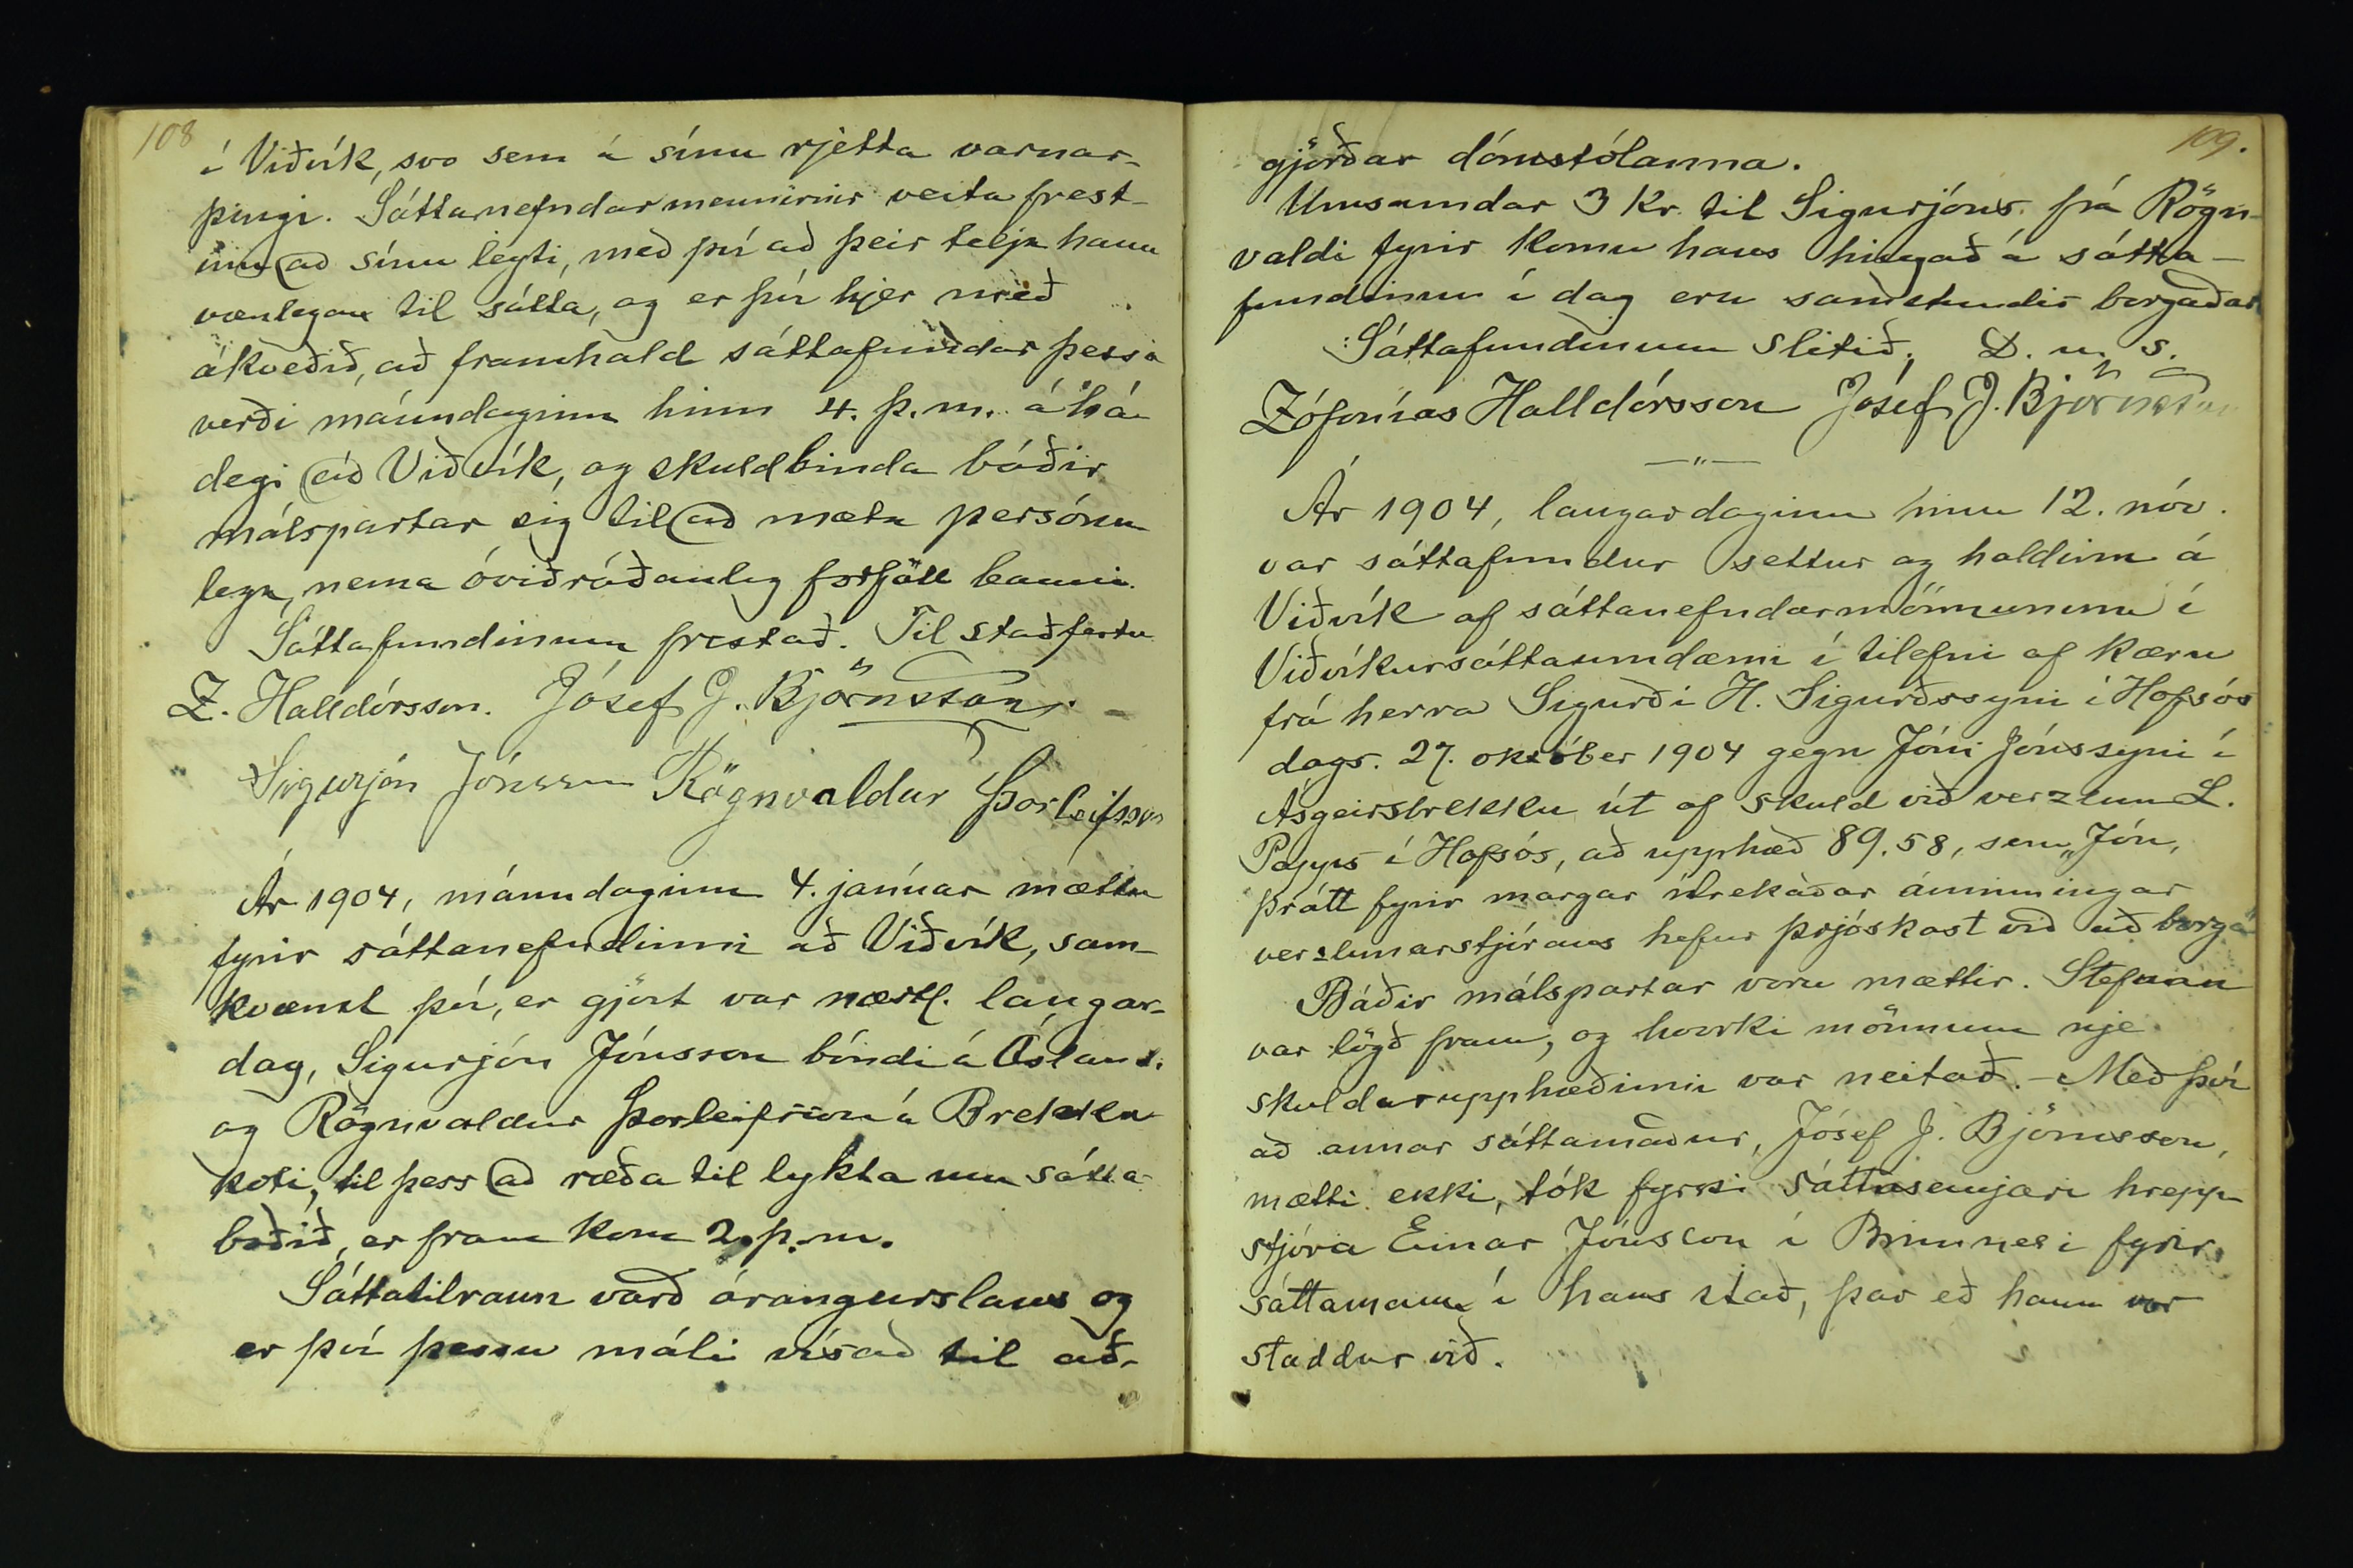 108
í Viðvík, svo sem á sínu rjetta varnar-
þingi. Sáttanefndarmennirnir veita frest-
inn að sínu leyti, með því að þeir telja hann
vænlegan til sátta, og er því hjer með
ákveðið, að framhald sáttafundar þessa
verði mánudaginn hinn 4. þ. m. á há-
degi að Viðvík, og skuldbinda báðir
málspartar sig til að mæta persónu
lega, nema óviðráðanleg forföll banni.
Sáttafundinum frestað. Til staðfestu
Z. Halldórsson. Jósef J. Björnsson.
Sigurjón Jónsson Rögnvaldur Þorleifsson
Ár 1904, mánudaginn 4. janúar mættu
fyrir sáttanefndinni að Viðvík, sam-
kvæmt því, er gjört var næstl. laugar-
dag, Sigurjón Jónsson bóndi á Óslandi.
og Rögnvaldur Þorleifsson á Brekku
koti, til þess að ræða til lykta um sátta
boðið, er fram kom 2. þ. m.
Sáttatilraun varð árangurslaus og
er því þessu máli vísað til að-
109.
gjörðar dómstólanna.
Umsamdar 3 Kr. til Sigurjóns frá Rögn-
valdi fyrir komu hans hingað á sátta-
fundinn í dag eru samstundis borgaðar
Sáttafundinum slitið. D. u. s.
Zófonías Halldórsson Jósef J. Björnsson
—"—
Ár 1904, laugardaginn hinn 12. nóv.
var sáttafundur settur og haldinn á
Viðvík af sáttanefndarmönnunum í
Viðvíkursáttaumdæmi í tilefni af kæru
frá herra Sigurði H. Sigurðssyni í Hofsós
dags. 27. október 1904 gegn Jóni Jónssyni í
Ásgeirsbrekku út af skuld við verzlun L.
Popps í Hofsós, að upphæð 89.58, sem „Jón,
þrátt fyrir margar ítrekaðar áminningar
verzlunarstjórans hefur þrjóskast við að borga"
Báðir málspartar voru mættir. Stefnan
var lögð fram, og hvorki mönnum nje
skuldarupphæðinni var neitað. - Með því
að annar sáttamaður, Jósef J. Björnsson,
mætti ekki, tók fyrsti sáttasemjari hrepp
stjóra Einar Jónsson í Brimnesi fyrir
sáttamann í hans stað, þar eð hann var
staddur við.